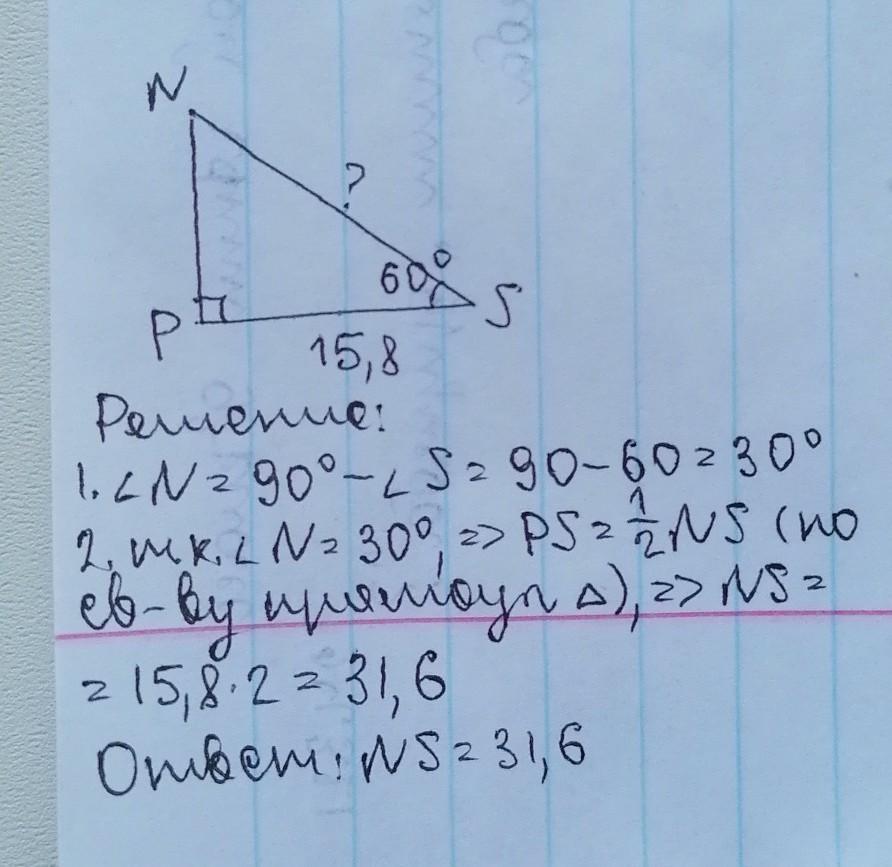 N
?
60°
P
S
15,8
Решение:
1. ∠N = 90° - ∠S = 90 - 60 = 30°
2. т.к. ∠N = 30°, => PS = 1/2 NS (по
св-ву прямоуг △), => NS =
= 15,8 · 2 = 31,6
Ответ: NS = 31,6